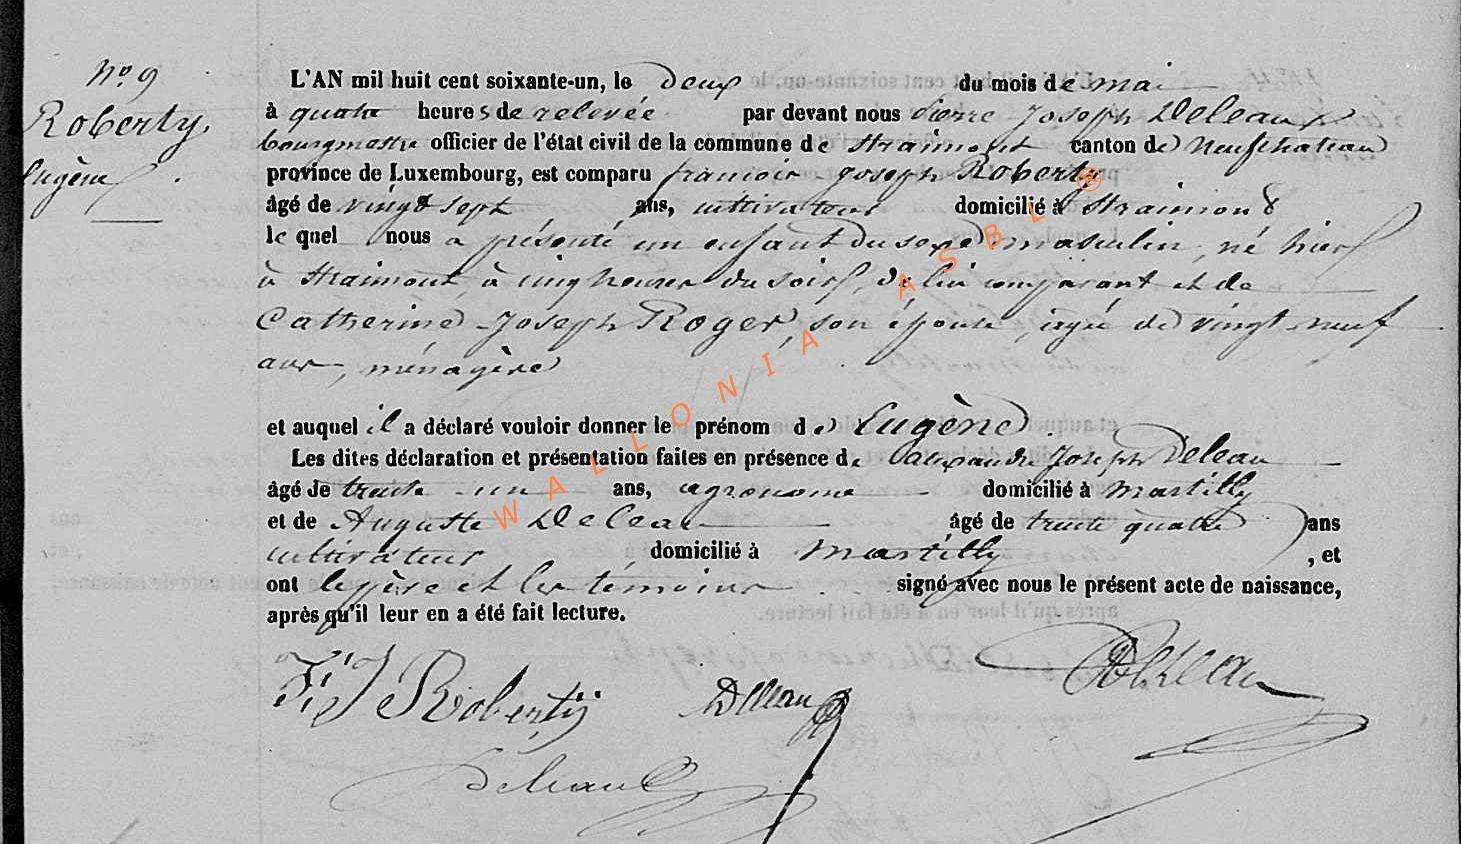 N° 9
Roberty
Eugène
L'AN mil huit cent soixante-un, le deux du mois de mai
à quatre heures de relevée par devant nous Pierre Joseph Deleau
bourgmestre officier de l'état civil de la commune de Straimont canton de Neufchateau
province de Luxembourg, est comparu francois joseph Roberty
âgé de vingt sept ans, cultivateur domicilié à Straimont
lequel nous a présenté un enfant du sexe masculin, né hier
à Straimont, à cinq heures du soir, de lui comparant et de
Catherine Joseph Roger, son épouse, agée de vingt-neuf
ans, ménagère
et auquel il a déclaré vouloir donner le prénom de Eugène
Les dites déclaration et présentation faites en présence de Alexandre Joseph Deleau
âgé de trente-un ans, agronome domicilié à Martilly
et de Auguste Deleau âgé de trente quatre ans
cultivateur domicilié à Martilly, et
ont le père et les témoins signé avec nous le présent acte de naissance,
après qu'il leur en a été fait lecture.
F: J: Roberty Deleau Deleau
Deleau
WALLONIA ASBL ®